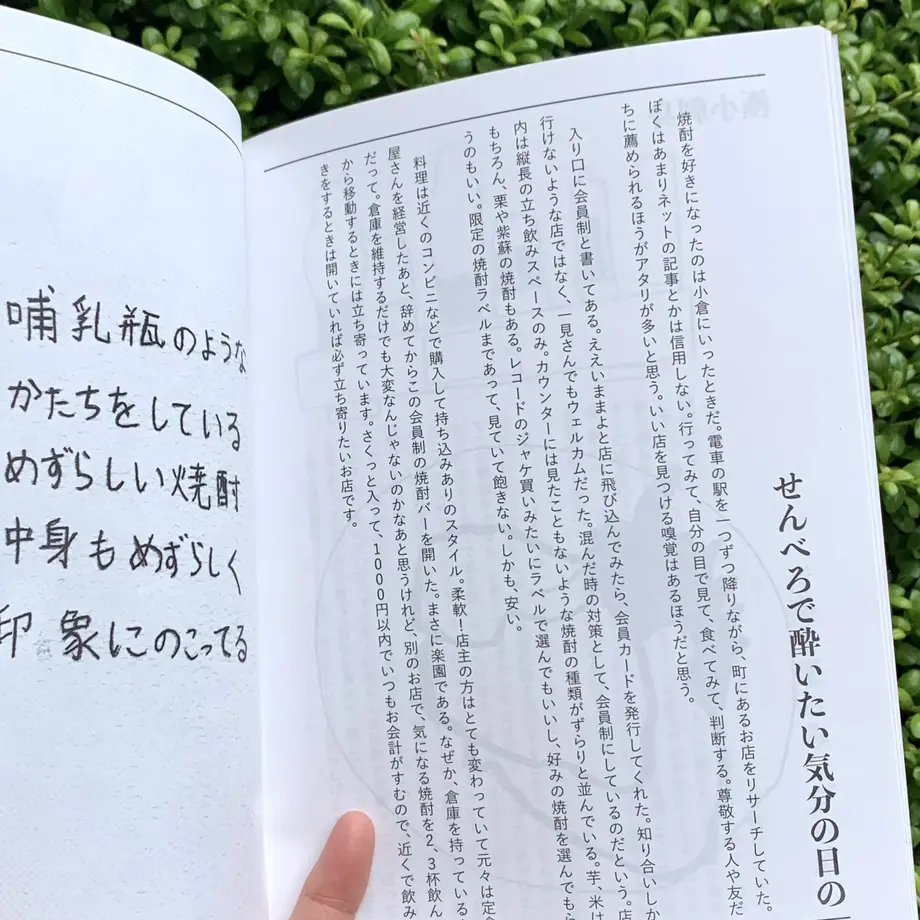 せんべろで酔いたい気分の日の
焼酎を好きになったのは小倉にいったときだ。電車の駅を一つずつ降りながら、町にあるお店をリサーチしていた。
ぼくはあまりネットの記事とかは信用しない。行ってみて、自分の目で見て、食べてみて、判断する。尊敬する人や友だ
ちに薦められるほうがアタリが多いと思う。いい店を見つける嗅覚はあるほうだと思う。
入り口に会員制と書いてある。ええいままよと店に飛び込んでみたら、会員カードを発行してくれた。知り合いしか
行けないような店ではなく、一見さんでもウェルカムだった。混んだ時の対策として、会員制にしているのだという。店
内は縦長の立ち飲みスペースのみ。カウンターには見たこともないような焼酎の種類がずらりと並んでいる。芋、米は
もちろん、栗や紫蘇の焼酎もある。レコードのジャケ買いみたいにラベルで選んでもいいし、好みの焼酎を選んでもら
うのもいい。限定の焼酎ラベルまであって、見ていて飽きない。しかも、安い。
料理は近くのコンビニなどで購入して持ち込みありのスタイル。柔軟！店主の方はとても変わっていて元々は定食
屋さんを経営したあと、辞めてからこの会員制の焼酎バーを開いた。まさに楽園である。なぜか、倉庫を持っている
だって。倉庫を維持するだけでも大変なんじゃないのかなあと思うけれど、別のお店で、気になる焼酎を2、3杯飲ん
から移動するときには立ち寄っています。さくっと入って、1000円以内でいつもお会計がすむので、近くで飲み
きをするときは開いていれば必ず立ち寄りたいお店です。
哺乳瓶のような
かたちをしている
めずらしい焼酎
中身もめずらしく
印象にのこってる